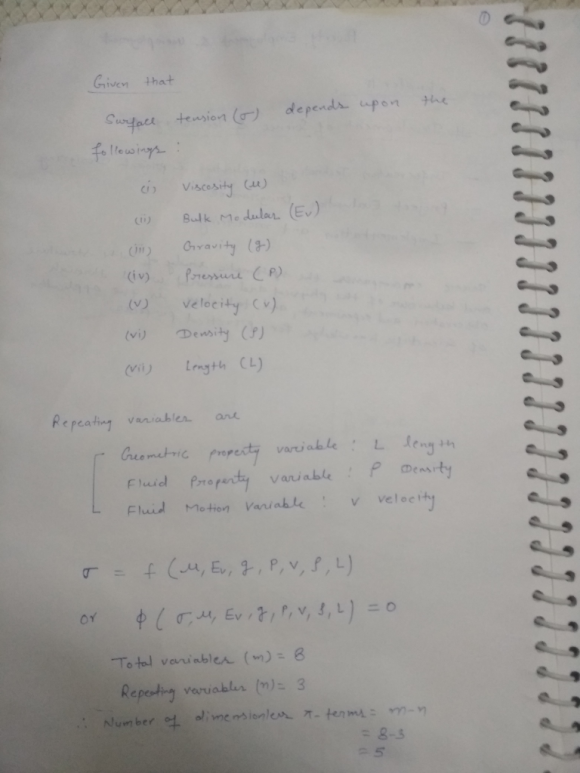 ①
Given that
Surface tension (σ) depends upon the
followings :
(i) Viscosity (μ)
(ii) Bulk Modular (Ev)
(iii) Gravity (g)
(iv) Pressure (P)
(v) velocity (v)
(vi) Density (ρ)
(vii) Length (L)
Repeating variables are
Geometric property variable : L length
Fluid Property variable : ρ Density
Fluid Motion Variable : v velocity
σ = f (μ, Ev, g, P, V, ρ, L)
or φ (σ, μ, Ev, g, P, V, ρ, L) = 0
Total variables (m) = 8
Repeating variables (n) = 3
∴ Number of dimensionless π-terms = m-n
= 8-3
= 5